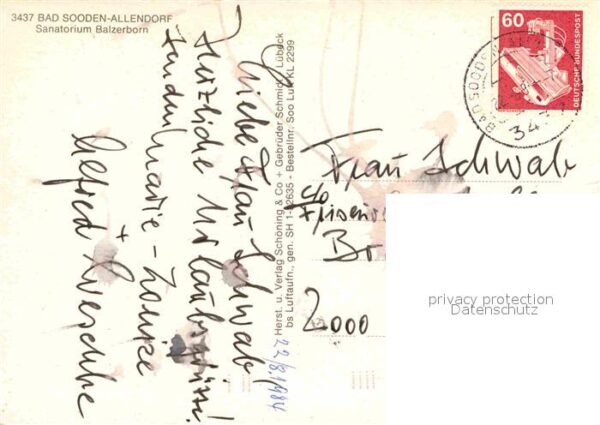 3437 BAD SOODEN-ALLENDORF
Sanatorium Balzerborn
Liebe Frau Schwab,
Herzliche Urlaubsgrüsse!
senden Marie-Louise
+
Alfred
22/8.1984
Herst. u. Verlag Schöning & Co + Gebrüder Schmidt, Lübeck
bs Luftaufn., gen. SH 1-
635 - Bestellnr. Soo Lu
KL 2299
60
DEUTSCHE BUNDESPOST
BAD SOODEN
3437
Frau Schwab
c/o
2000
privacy protection
Datenschutz